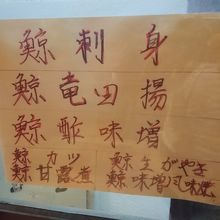 鯨刺身
鯨竜田揚
鯨酢味噌
鯨カツ
鯨甘露煮
鯨生がやき
鯨味噌風味焼